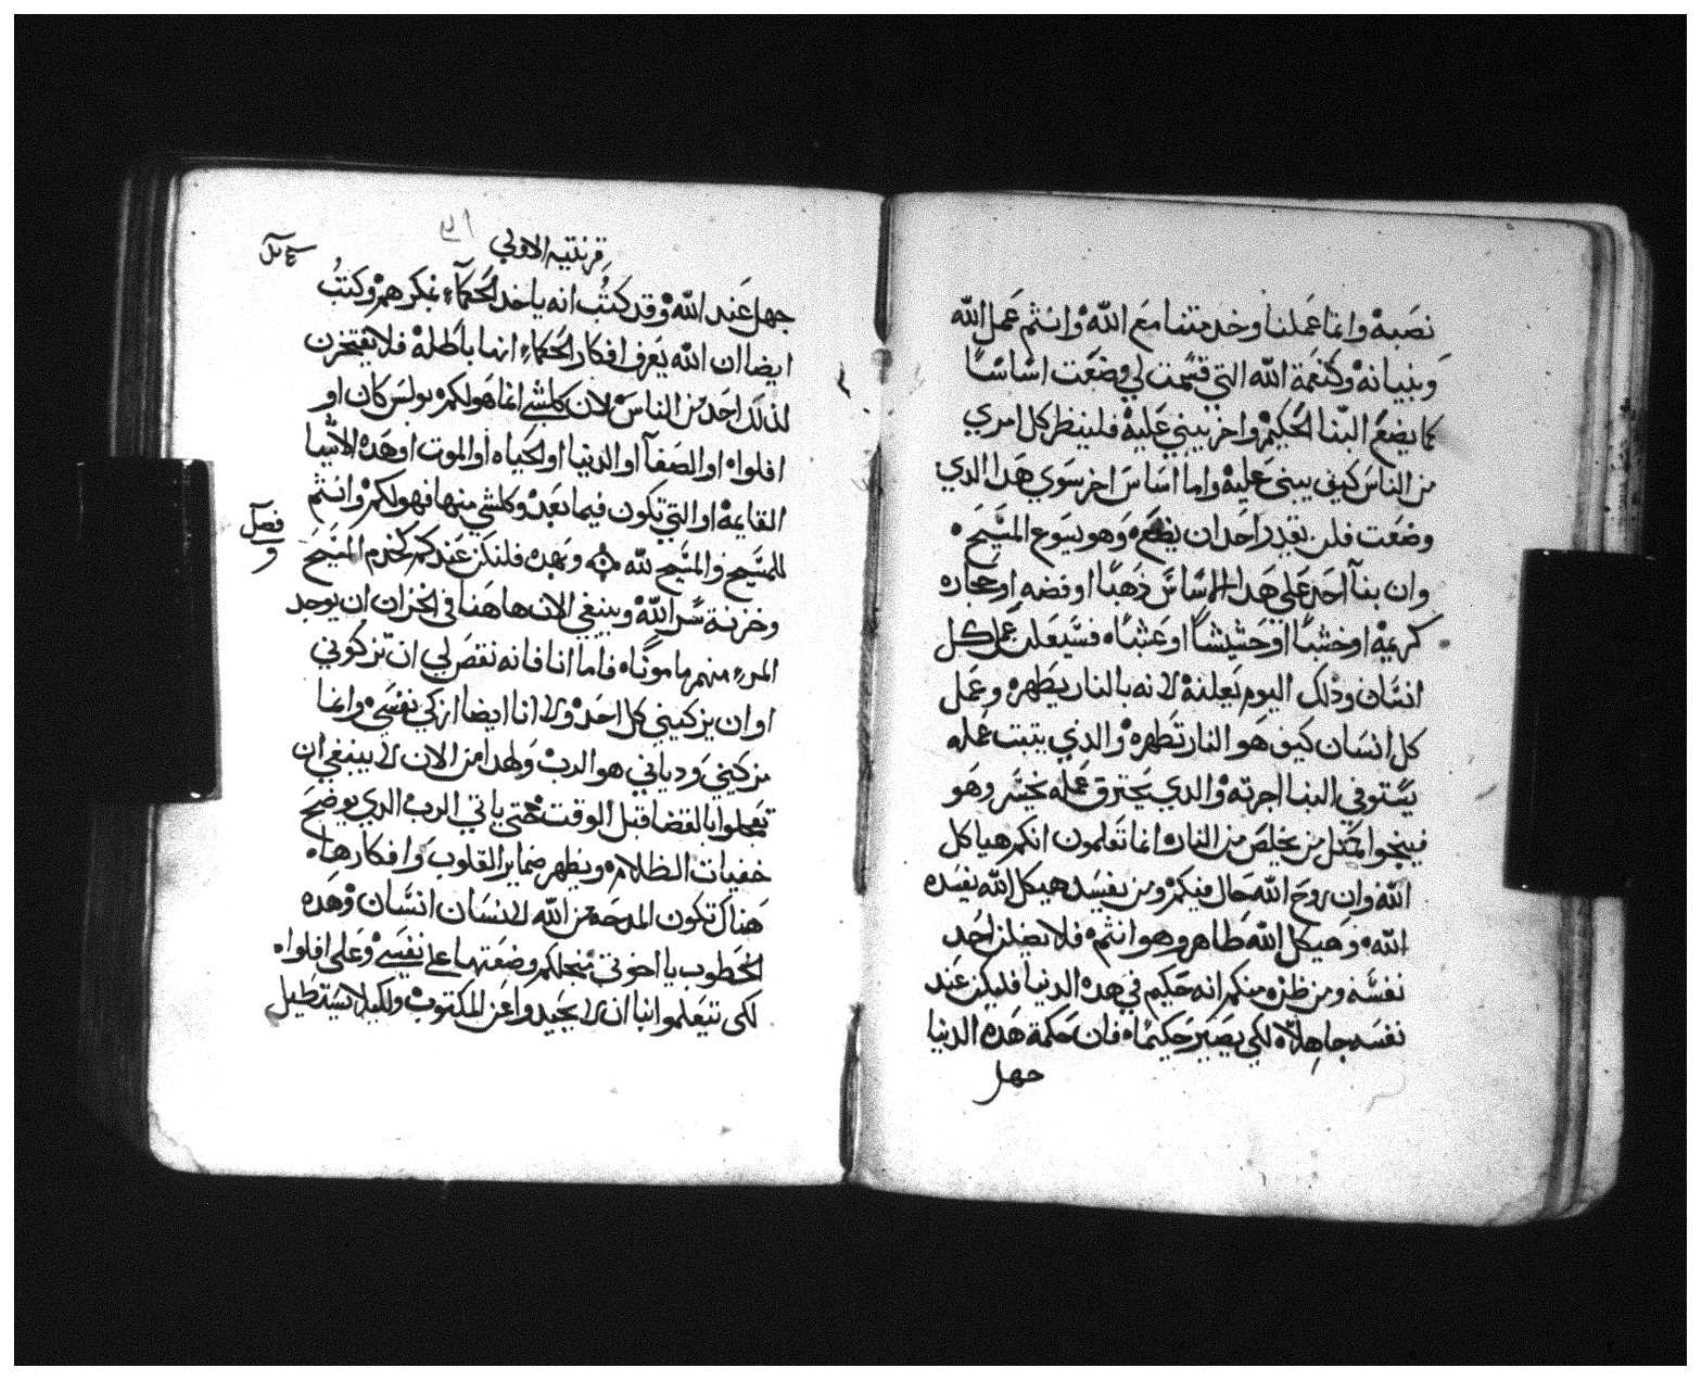 نصبه وانما عملنا وخدمتنا مع الله وانتم عمل الله
وبنيانه وكنعمة الله التي قسمت لي وضعت اساسًا
كما يضع البنا الحكيم واخر يبني عليه فلينظر كل امري
من الناس كيف يبنى عليه واما اساس اخر سوي هدا الدي
وضعت فلن يقدر احد ان يضعه وهو يسوع المسيح
وان بنآ احد علي هدا الاساس دهبًا او فضه او حجاره
كريمه او خشبًا او حشيشاً او عشبًا فسيعلن عمل كل
انسان ودلك اليوم يعلنه لانه بالنار يظهر وعمل
كل انسان كيف هو النار تظهره والدي يتبت عمله
يستوفي البنا اجرته والدي يحترق عمله يخسر وهو
فينجوا كمتل من يخلص من النار اما تعلمون انكم هياكل
الله وان روح الله حال فيكم ومن يفسد هيكل الله يفسده
الله وهيكل الله طاهر وهو انتم فلا يضلن احد
نفسه ومن ظن منكم انه حكيم في هده الدنيا فليكن عند
نفسه جاهلاً لكي يصير حكيمًا فان حكمة هده الدنيا
جهل
قرنتيه الاولي
جهل عند الله وقد كتب انه ياخد الحكمآء بمكرهم وكتب
ايضا ان الله يعرف افكار الحكماء انها باطله فلا يفتخرن
لدلك احد من الناس لان كلشي انما هو لكم بولس كان او
افلوا او الصفآ او الدنيا او الحياه او الموت او هده الاشيا
القايمه او التي تكون فيما بعد وكلشي منها فهو لكم وانتم
للمسيح والمسيح لله وبهده فلنكن عندكم كخدم المسيح
فصل
و
وخزنة سر الله وينبغي الان هاهنا في الخزان ان يوجد
المرء منهم مامونًا فاما انا فانه نقص لي ان تزكوني
او ان يزكيني كل احد ولا انا ايضا ازكي نفسي وانما
مزكيني ودياني هو الرب ولهدا من الان لا ينبغي ان
تعجلوا بالقضا قبل الوقت حتى ياتي الرب الدي يوضح
خفيات الظلام ويظهر ضماير القلوب وافكارها
هناك تكون المدحه من الله لانسان انسان وهده
الخطوب يا اخوتي منجلكم وضعتها على نفسي وعلى افلوا
لكى تتعلموا بنا ان لا تحيدوا عن المكتوب ولكيلا يستطيل